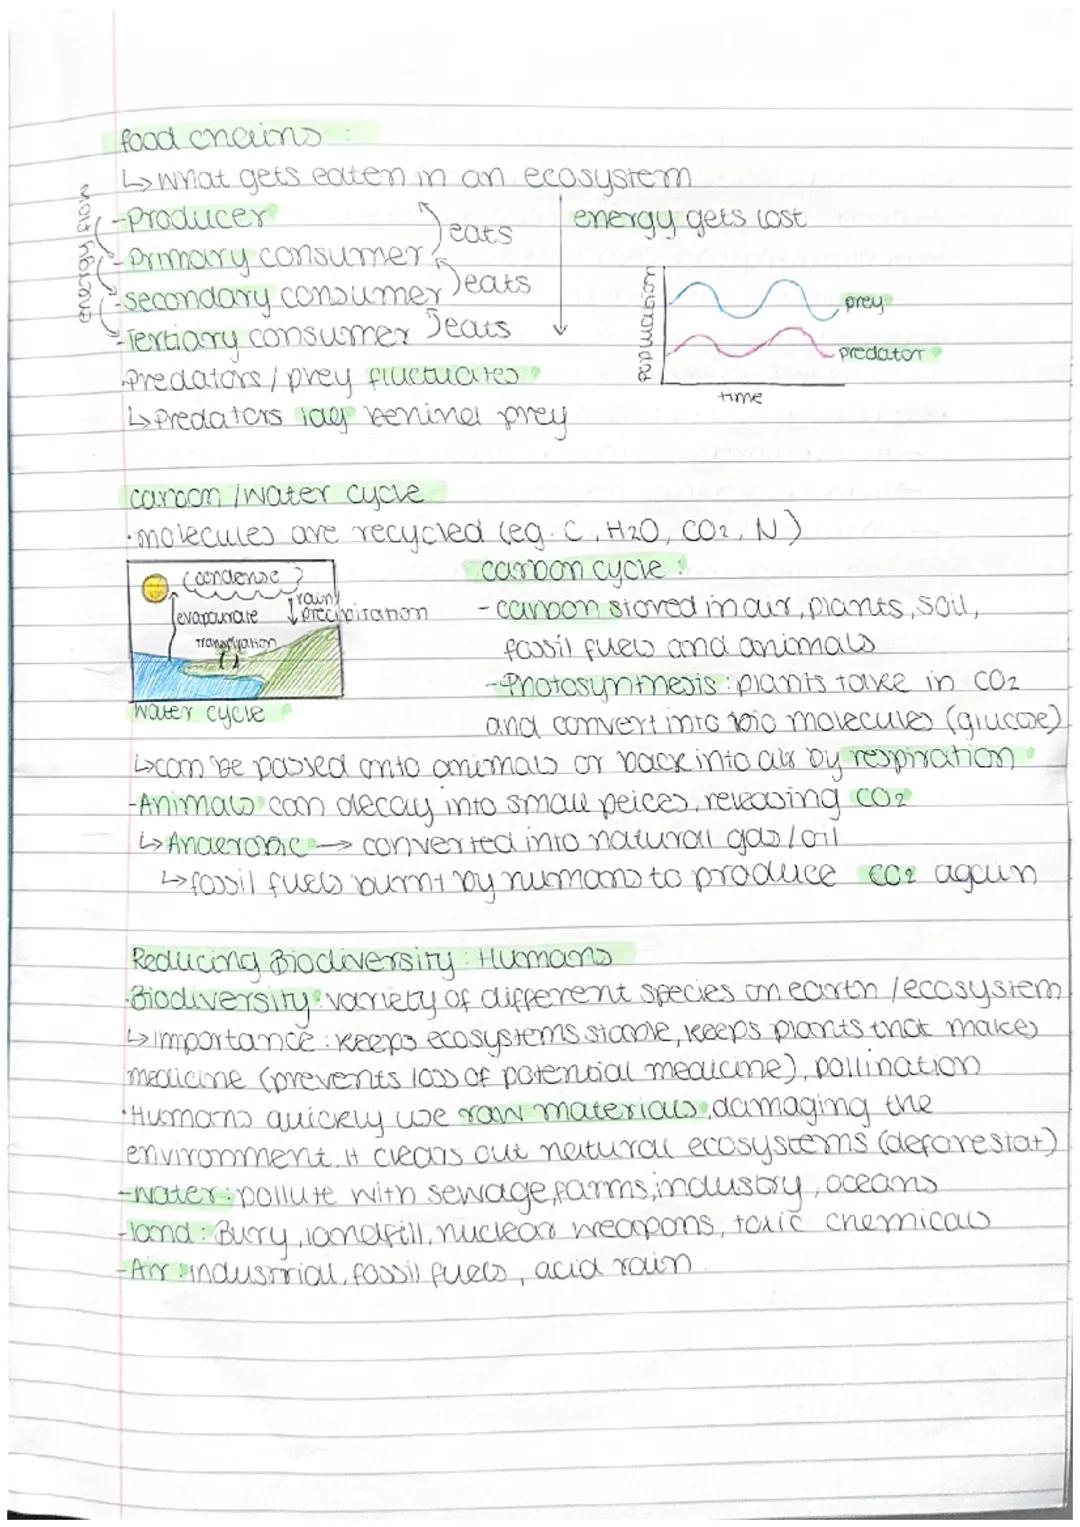 food chains :
↳ what gets eaten in an ecosystem
-Producer
eats
energy gets lost
-Primary consumer
eats
-secondary consumer
eats
-Tertiary consumer
population
prey
predator
time
·Predators / prey fluctuates
↳ Predators lag behind prey
carbon / water cycle
·molecules are recycled (eg. C, H2O, CO2, N)
(condense)
evapourate
rain/
precipitation
transpiration
water cycle
carbon cycle :
- carbon stored in air, plants, soil,
fossil fuels and animals
-Photosynthesis : plants take in CO2
and convert into bio molecules (glucose)
↳ can be passed onto animals or back into air by respiration
-Animals can decay into small peices, releasing CO2
↳ Anaerobic → converted into natural gas / oil
↳ fossil fuels burnt by humans to produce CO2 again
Reducing Biodiversity : Humans
·Biodiversity : variety of different species on earth / ecosystem
↳ importance : keeps ecosystems stable, keeps plants that makes
medicine (prevents loss of potential medicine), pollination
·Humans quickly use raw materials, damaging the
environment. it clears out natural ecosystems (deforestat)
-Water : pollute with sewage, farms, industry, oceans
-land : Bury, landfill, nuclear weapons, toxic chemicals
-Air : industrial, fossil fuels, acid rain